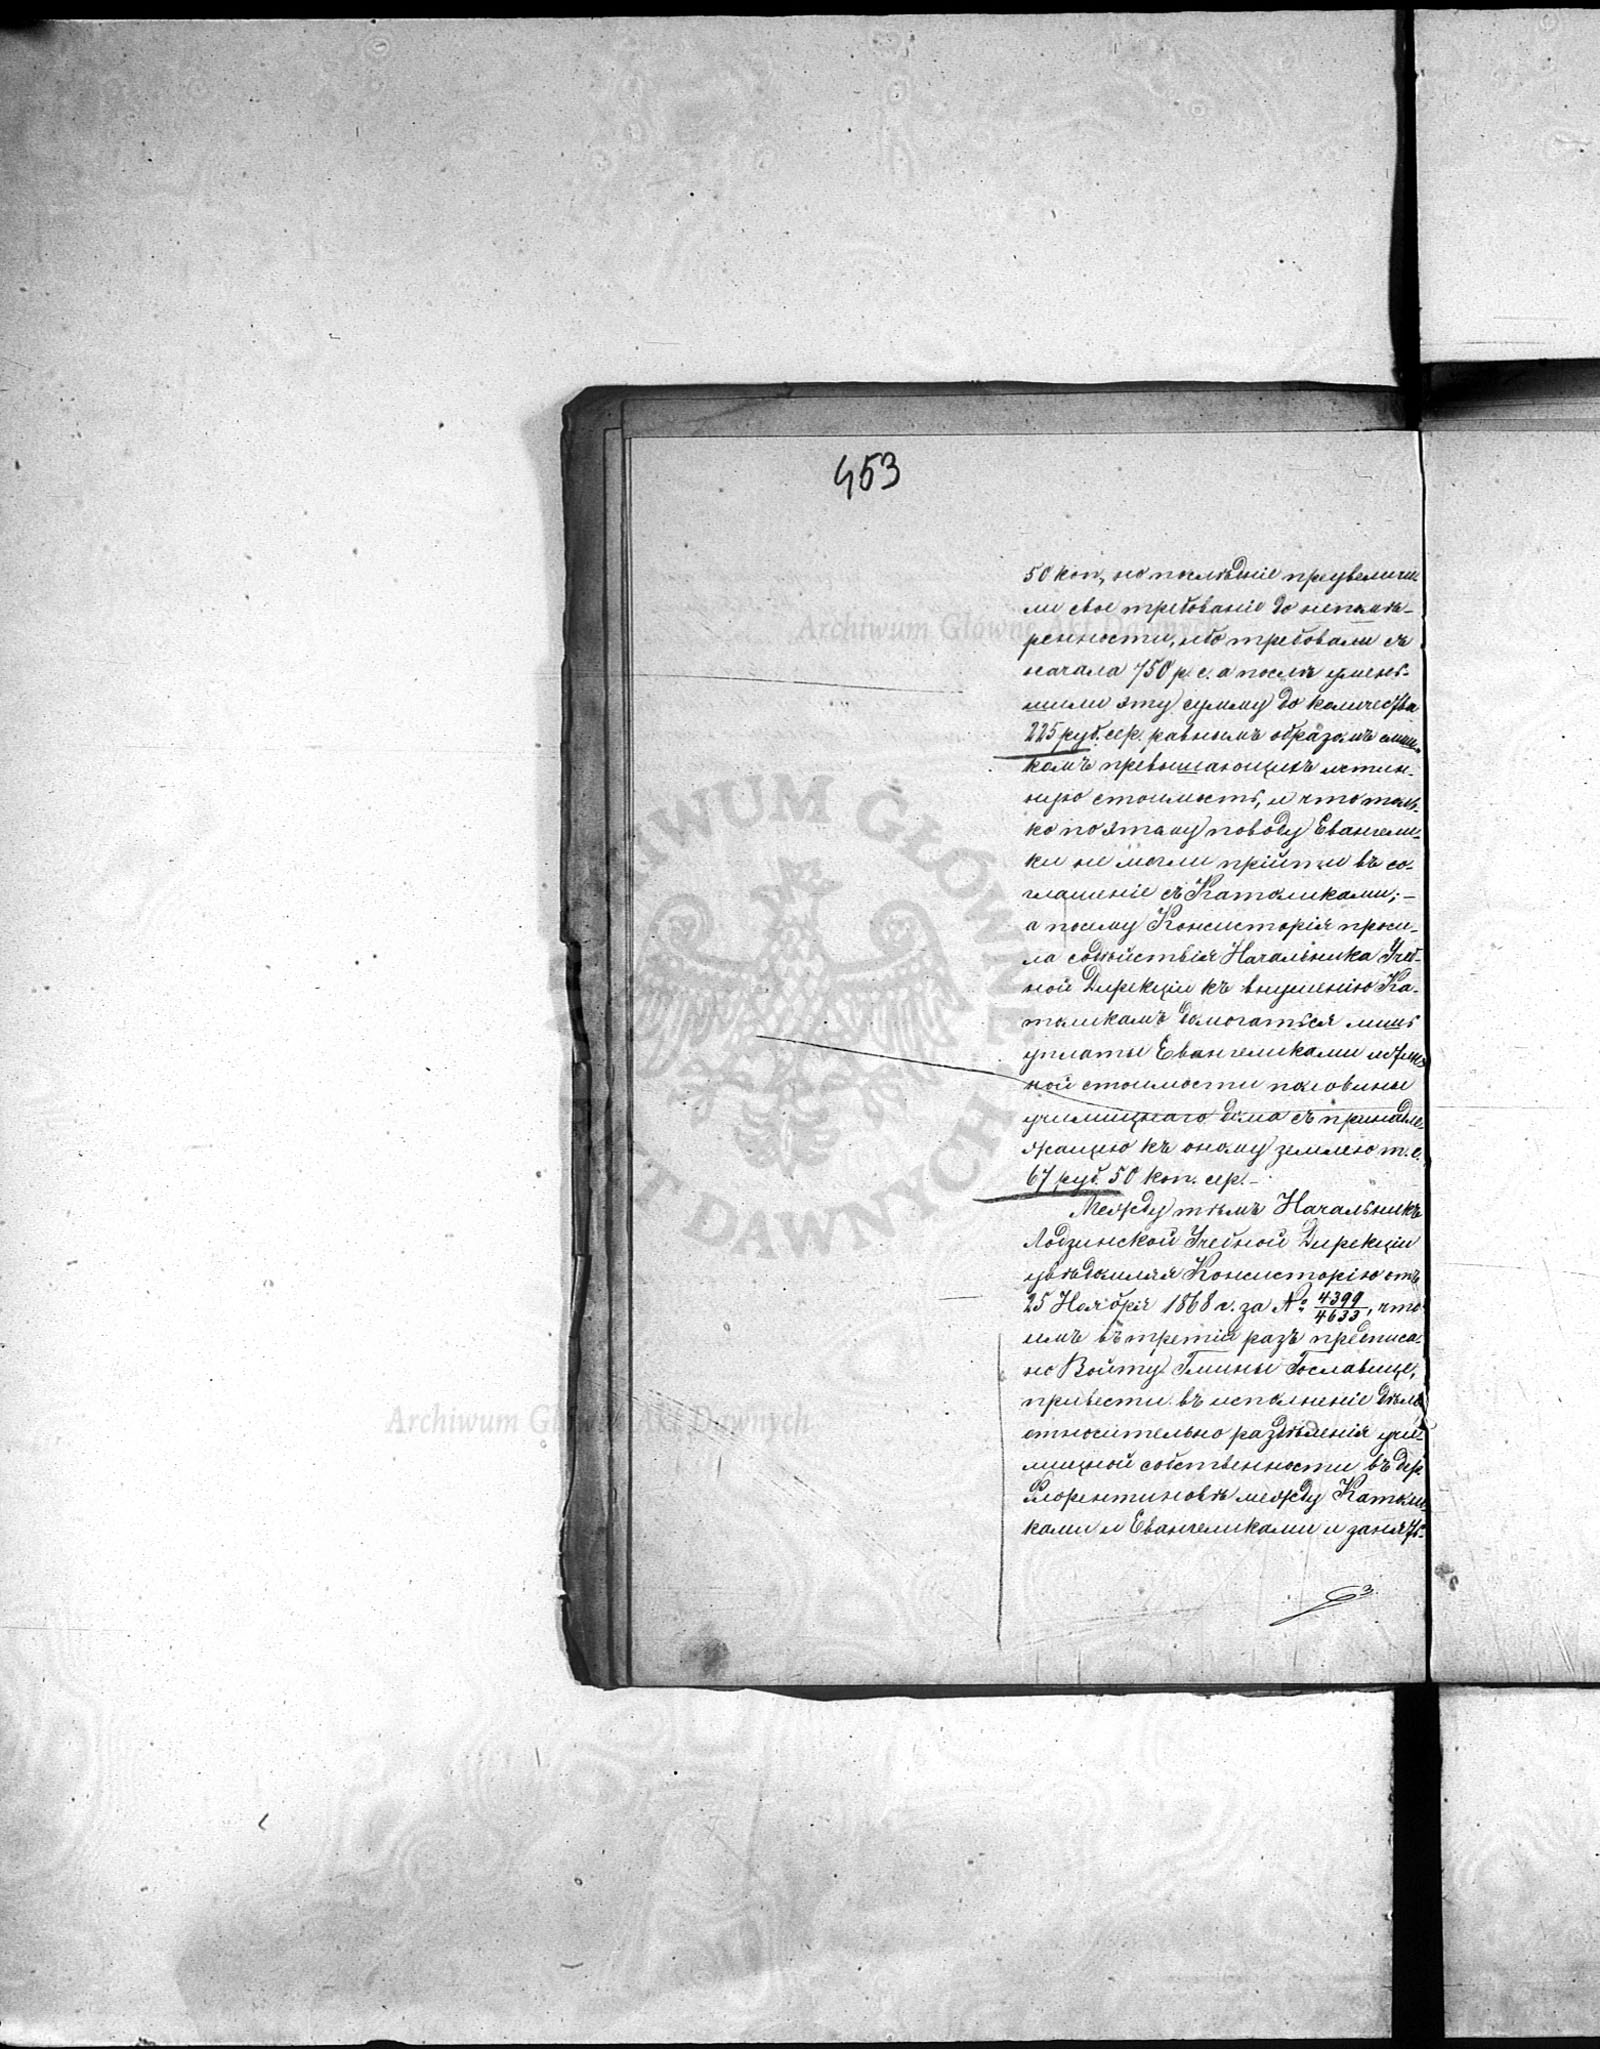 453
50 коп, но послѣдніе преувеличи
ли свое требованіе до непомѣ-
ренности, ибо требовали съ
начала 750 р. с. а послѣ умень-
шили эту сумму до количества
225 руб. сер. равнымъ образомъ слиш-
комъ превышающихъ истин-
ную стоимость, и что толь-
ко по этому поводу Евангели-
ки не могли прійти въ со-
глашеніе съ Католиками; –
а посему Консисторія проси-
ла содѣйствія Начальника Учеб-
ной Дирекціи къ внушенію Ка-
толикамъ домогаться лишь
уплаты Евангеликами истин
ной стоимости половины
училищнаго дома съ принадле-
жащею къ оному землею т. е.
67 руб. 50 коп. сер. –
Между тѣмъ Начальникъ
Лодзинской Учебной Дирекціи
увѣдомляя Консисторію отъ
25 Ноября 1868 г. за № 4399/4633, что
имъ въ третій разъ предписа-
но Войту Гмины Гославице,
привести въ исполненіе дѣло
относительно раздѣленія учи-
лищной собственности въ дер.
Флорентиновѣ между Католи
ками и Евангеликами и занять-
Archiwum Główne Akt Dawnych
Archiwum Główne Akt Dawnych
ARCHIWUM GŁÓWNE AKT DAWNYCH